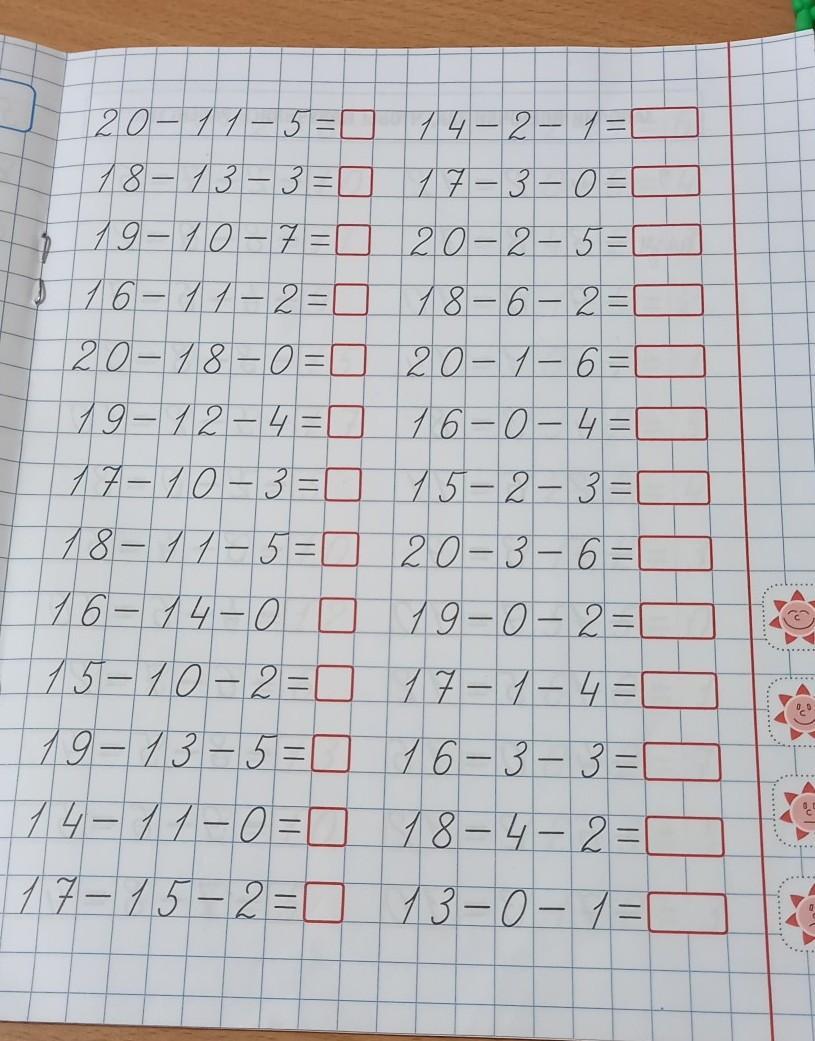 20-11-5= 14-2-1=
18-13-3= 17-3-0=
19-10-7= 20-2-5=
16-11-2= 18-6-2=
20-18-0= 20-1-6=
19-12-4= 16-0-4=
17-10-3= 15-2-3=
18-11-5= 20-3-6=
16-14-0 19-0-2=
15-10-2= 17-1-4=
19-13-5= 16-3-3=
14-11-0= 18-4-2=
17-15-2= 13-0-1=